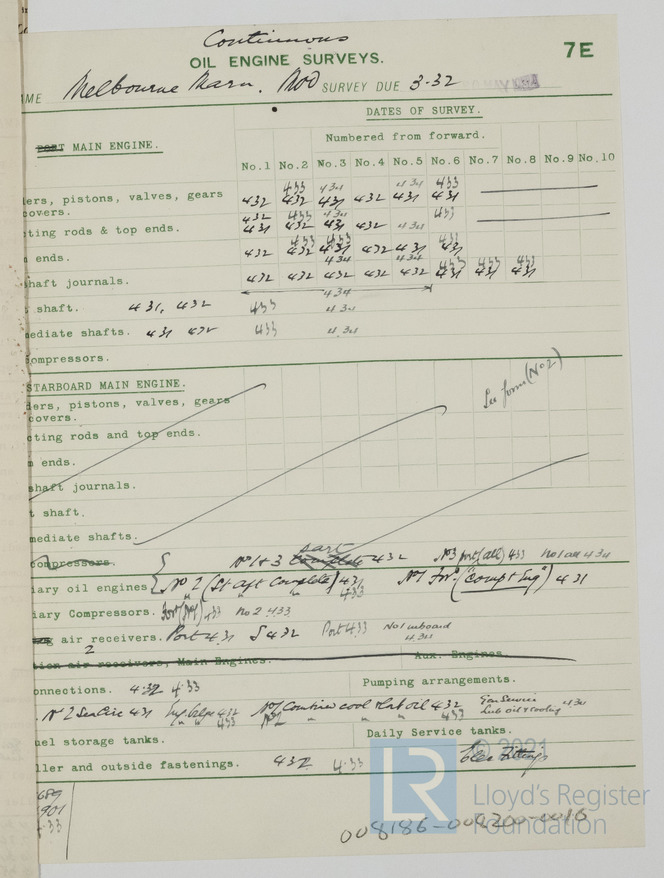 Continuous
OIL ENGINE SURVEYS. 7E
AME Melbourne Maru. SURVEY DUE 3-32
DATES OF SURVEY.
MAIN ENGINE.
Numbered from forward.
No.1 No.2 No.3 No.4 No.5 No.6 No.7 No.8 No.9 No.10
433 434 434 433
ders, pistons, valves, gears
432 432 431 432 431 431
covers.
432 433 434 433
cting rods & top ends. 431 432 431 432 434
433 433
ends. 432 432 431 432 431 431
434 434 433 433 433
shaft journals. 432 432 432 432 432 431 431 431
434
t shaft. 431, 432 433 434
mediate shafts. 431 432 433 434
compressors.
STARBOARD MAIN ENGINE.
ders, pistons, valves, gears
covers.
See form (No 2)
cting rods and top ends.
ends.
shaft journals.
t shaft.
mediate shafts.
part
compressors. No 1 + 3 complete 432 No 3 port (all) 433 No 1 all 434
iary oil engines No 2 (St aft Complete) 431 No 1 For'd ("Comp & Eng") 431
433
iary Compressors. 433 No 2 433
air receivers. Port 431 S 432 Port 433 No 1 inboard
434
2
tion air receivers, Main Engines. Aux. Engines.
onnections. 432 4.33 Pumping arrangements.
No 2 Sea Circ 431 432 432
433 433 Lub oil & cooling 434
uel storage tanks. Daily Service tanks.
ller and outside fastenings. 432 4.33
689
901
4.33
© 2021
LR Lloyd's Register
Foundation
008186-008200-0016